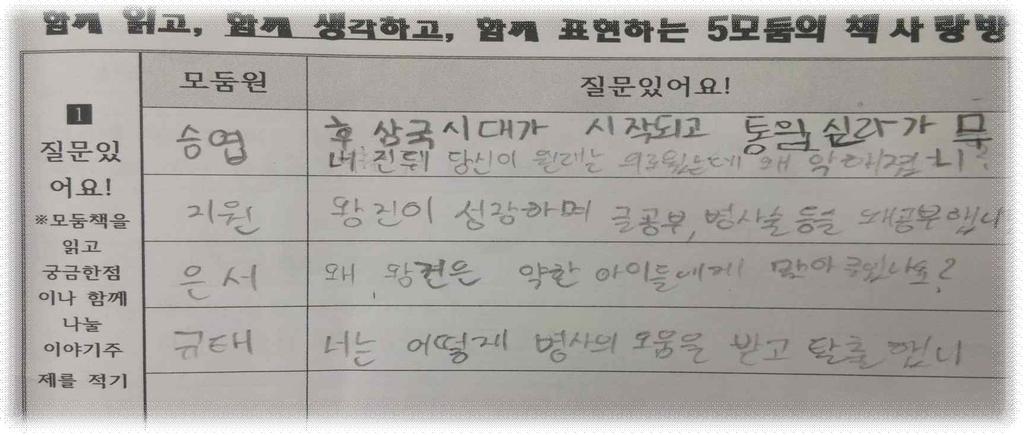 함께 읽고, 함께 생각하고, 함께 표현하는 5모둠의 책사랑방
모둠원
질문있어요!
1
질문있
어요!
※모둠책을
읽고
궁금한점
이나 함께
나눌
이야기주
제를 적기
승엽
후 삼국시대가 시작되고 통일 신라가
당신이 원래는 왜
지원
왕건이 성장하며 글공부, 병사술 등을 왜 공부했니
은서
왜 왕건은 약한 아이들에게 맞아
규태
너는 어떻게 병사의 도움을 받고 탈출했니